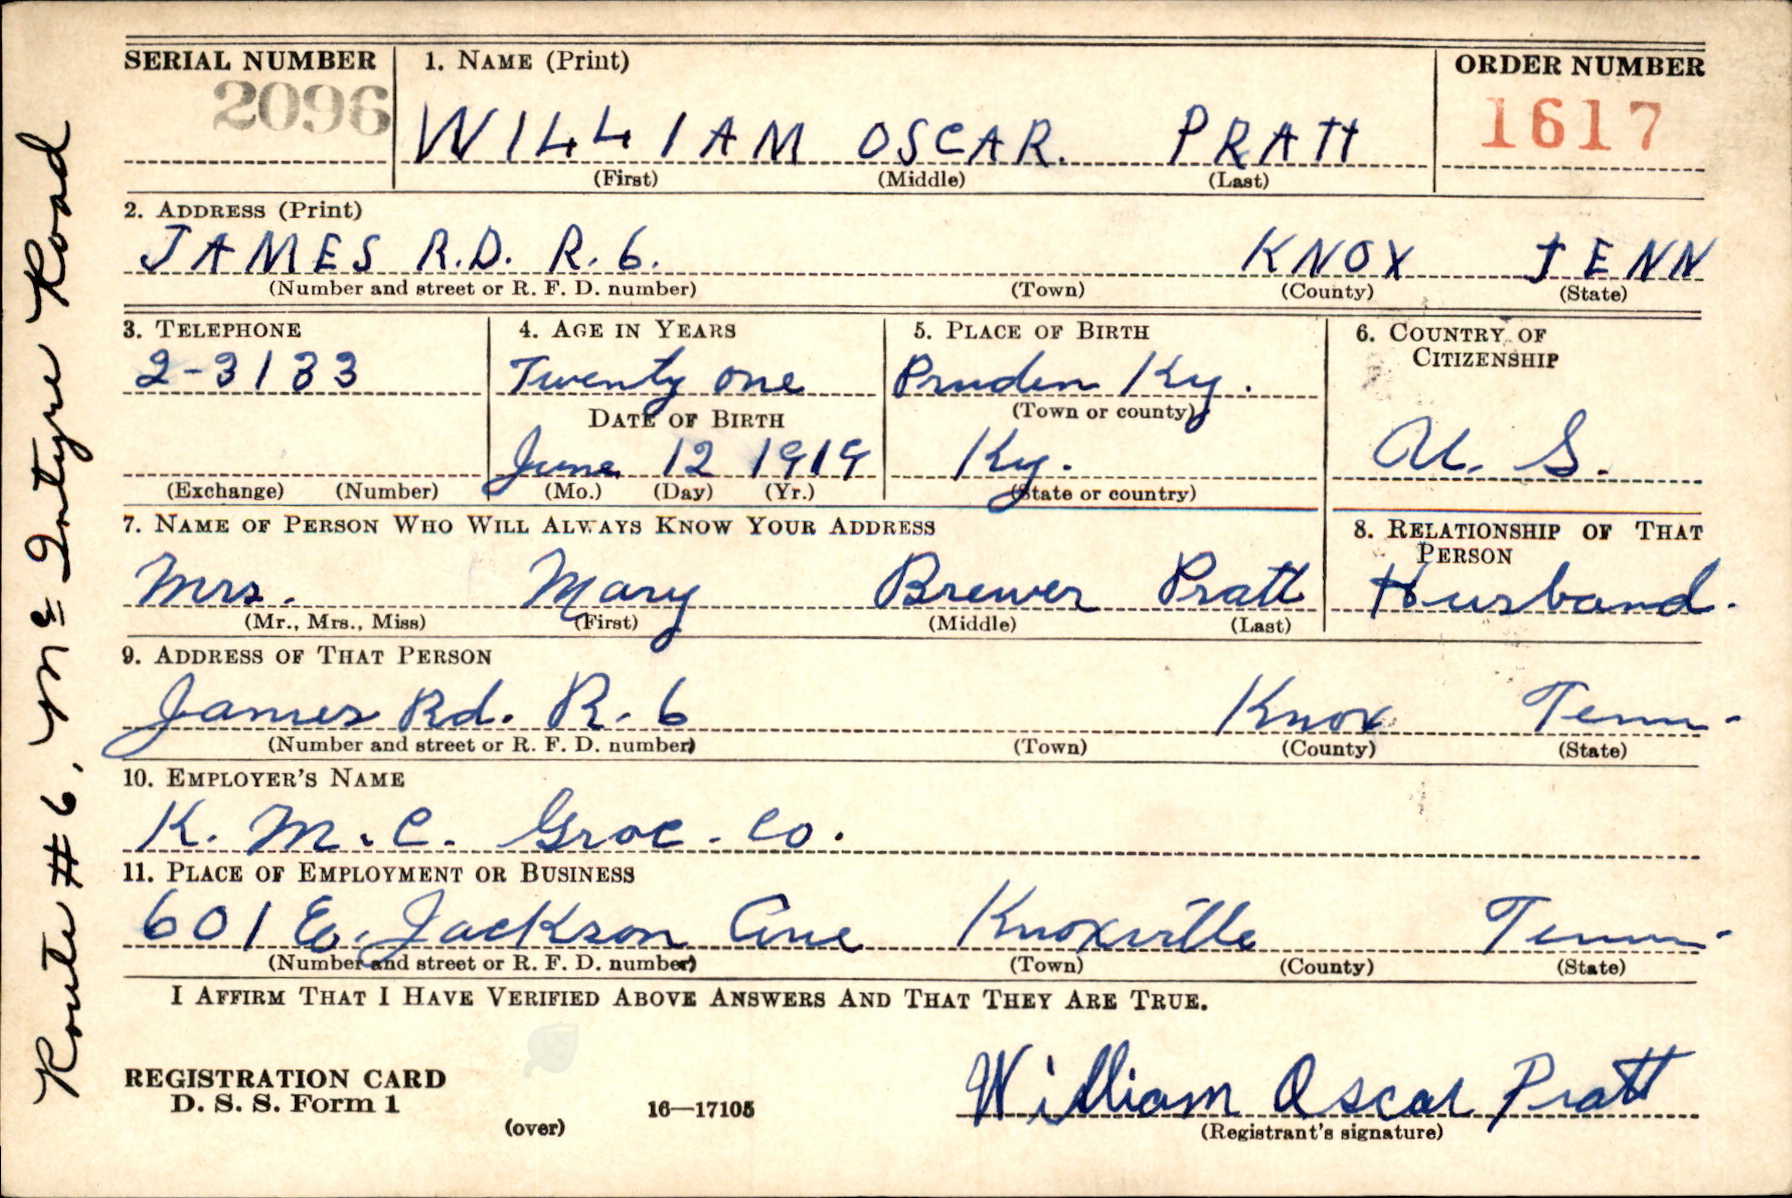 SERIAL NUMBER 1. NAME (Print) ORDER NUMBER
2096 WILLIAM OSCAR. PRATT 1617
(First) (Middle) (Last)
2. ADDRESS (Print)
JAMES R.D. R. 6. KNOX TENN
(Number and street or R. F. D. number) (Town) (County) (State)
3. TELEPHONE 4. AGE IN YEARS 5. PLACE OF BIRTH 6. COUNTRY OF CITIZENSHIP
2-3133 Twenty one Pruden Ky.
DATE OF BIRTH (Town or county)
June 12 1919 Ky. U. S.
(Exchange) (Number) (Mo.) (Day) (Yr.) (State or country)
7. NAME OF PERSON WHO WILL ALWAYS KNOW YOUR ADDRESS 8. RELATIONSHIP OF THAT PERSON
Mrs. Mary Brewer Pratt Husband.
(Mr., Mrs., Miss) (First) (Middle) (Last)
9. ADDRESS OF THAT PERSON
James Rd. R. 6 Knox Tenn-
(Number and street or R. F. D. number) (Town) (County) (State)
10. EMPLOYER'S NAME
K. M. C. Groc. Co.
11. PLACE OF EMPLOYMENT OR BUSINESS
601 E. Jackson Ave Knoxville Tenn-
(Number and street or R. F. D. number) (Town) (County) (State)
I AFFIRM THAT I HAVE VERIFIED ABOVE ANSWERS AND THAT THEY ARE TRUE.
REGISTRATION CARD
D. S. S. Form 1
(over) 16—17105
William Oscar Pratt
(Registrant's signature)
Route #6, Mc Intyre Road